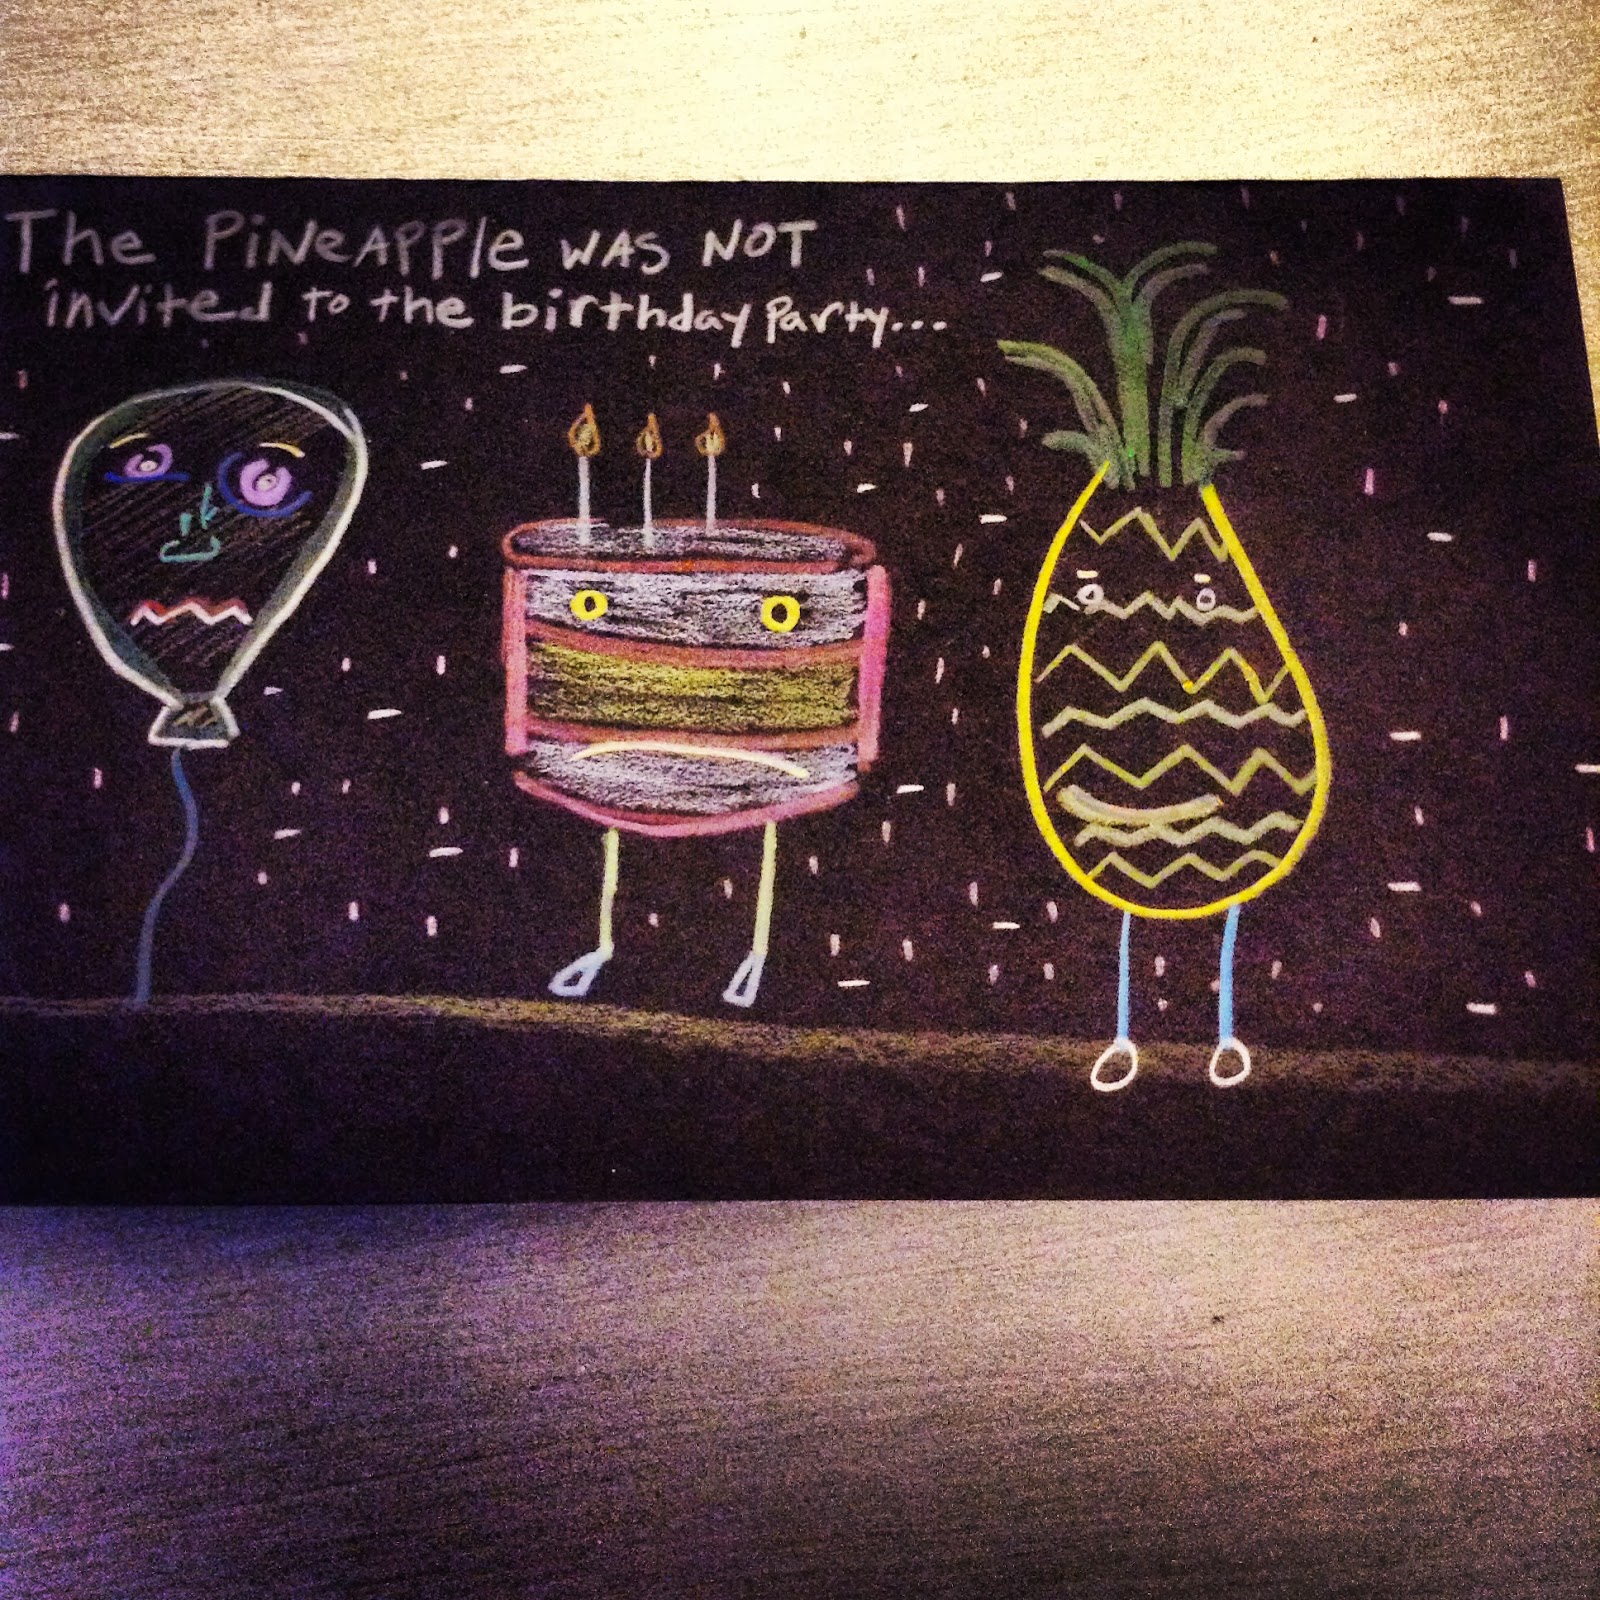 The PiNeAPPle WAS NOT
invited to the birthday Party...